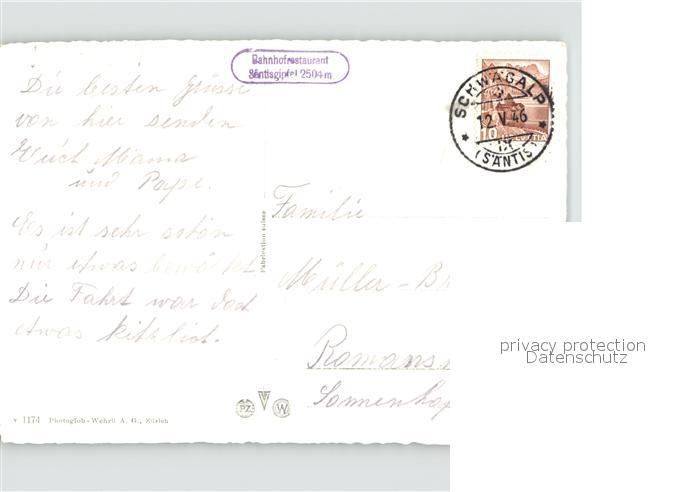 Bahnhofrestaurant
Säntisgipfel 2504 m
SCHWÄGALP
12.V.46
IX
(SÄNTIS)
10
HELVETIA
Die besten Grüsse
von hier senden
Euch Mama
und Pape.
Es ist sehr schön
nur etwas bewölkt.
Die Fahrt war doch
etwas kitzlich.
Fabrication suisse
Familie
Müller - B
Romans
Sonnenha
PZ
W
v 1174 Photoglob-Wehrli A. G., Zürich
privacy protection
Datenschutz